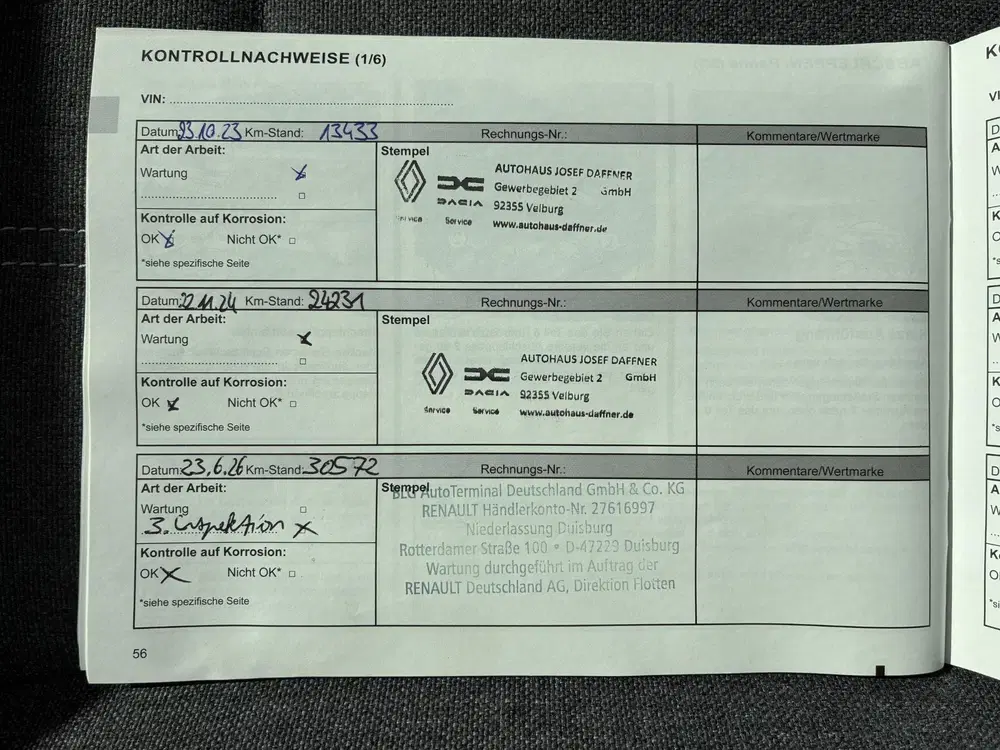 KONTROLLNACHWEISE (1/6)
VIN:
Datum: 23.10.23 Km-Stand: 13433 Rechnungs-Nr.: Kommentare/Wertmarke
Art der Arbeit:
Wartung
Kontrolle auf Korrosion:
OK Nicht OK*
*siehe spezifische Seite
Stempel
AUTOHAUS JOSEF DAFFNER
Gewerbegebiet 2 GmbH
DACIA 92355 Velburg
Service Service www.autohaus-daffner.de
Datum: 22.11.24 Km-Stand: 24231 Rechnungs-Nr.: Kommentare/Wertmarke
Art der Arbeit:
Wartung
Kontrolle auf Korrosion:
OK Nicht OK*
*siehe spezifische Seite
Stempel
AUTOHAUS JOSEF DAFFNER
Gewerbegebiet 2 GmbH
DACIA 92355 Velburg
Service Service www.autohaus-daffner.de
Datum: 23.6.26 Km-Stand: 30572 Rechnungs-Nr.: Kommentare/Wertmarke
Art der Arbeit:
Wartung
3. Inspektion
Kontrolle auf Korrosion:
OK Nicht OK*
*siehe spezifische Seite
Stempel
BLG AutoTerminal Deutschland GmbH & Co. KG
RENAULT Händlerkonto-Nr. 27616997
Niederlassung Duisburg
Rotterdamer Straße 100 • D-47229 Duisburg
Wartung durchgeführt im Auftrag der
RENAULT Deutschland AG, Direktion Flotten
56